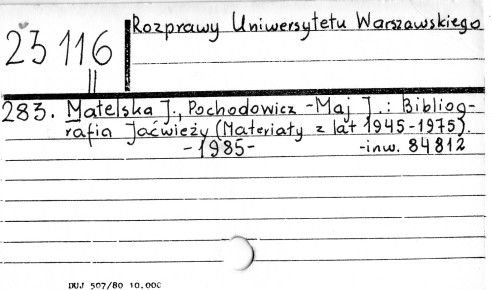 Rozprawy Uniwersytetu Warszawskiego
23 116
II
283. Matelska J., Pochodowicz-Maj J.: Bibliog-
rafia Jaćwieży (Materiały z lat 1945-1975).
-1985- -inw. 84812
DUJ 507/80 10.000